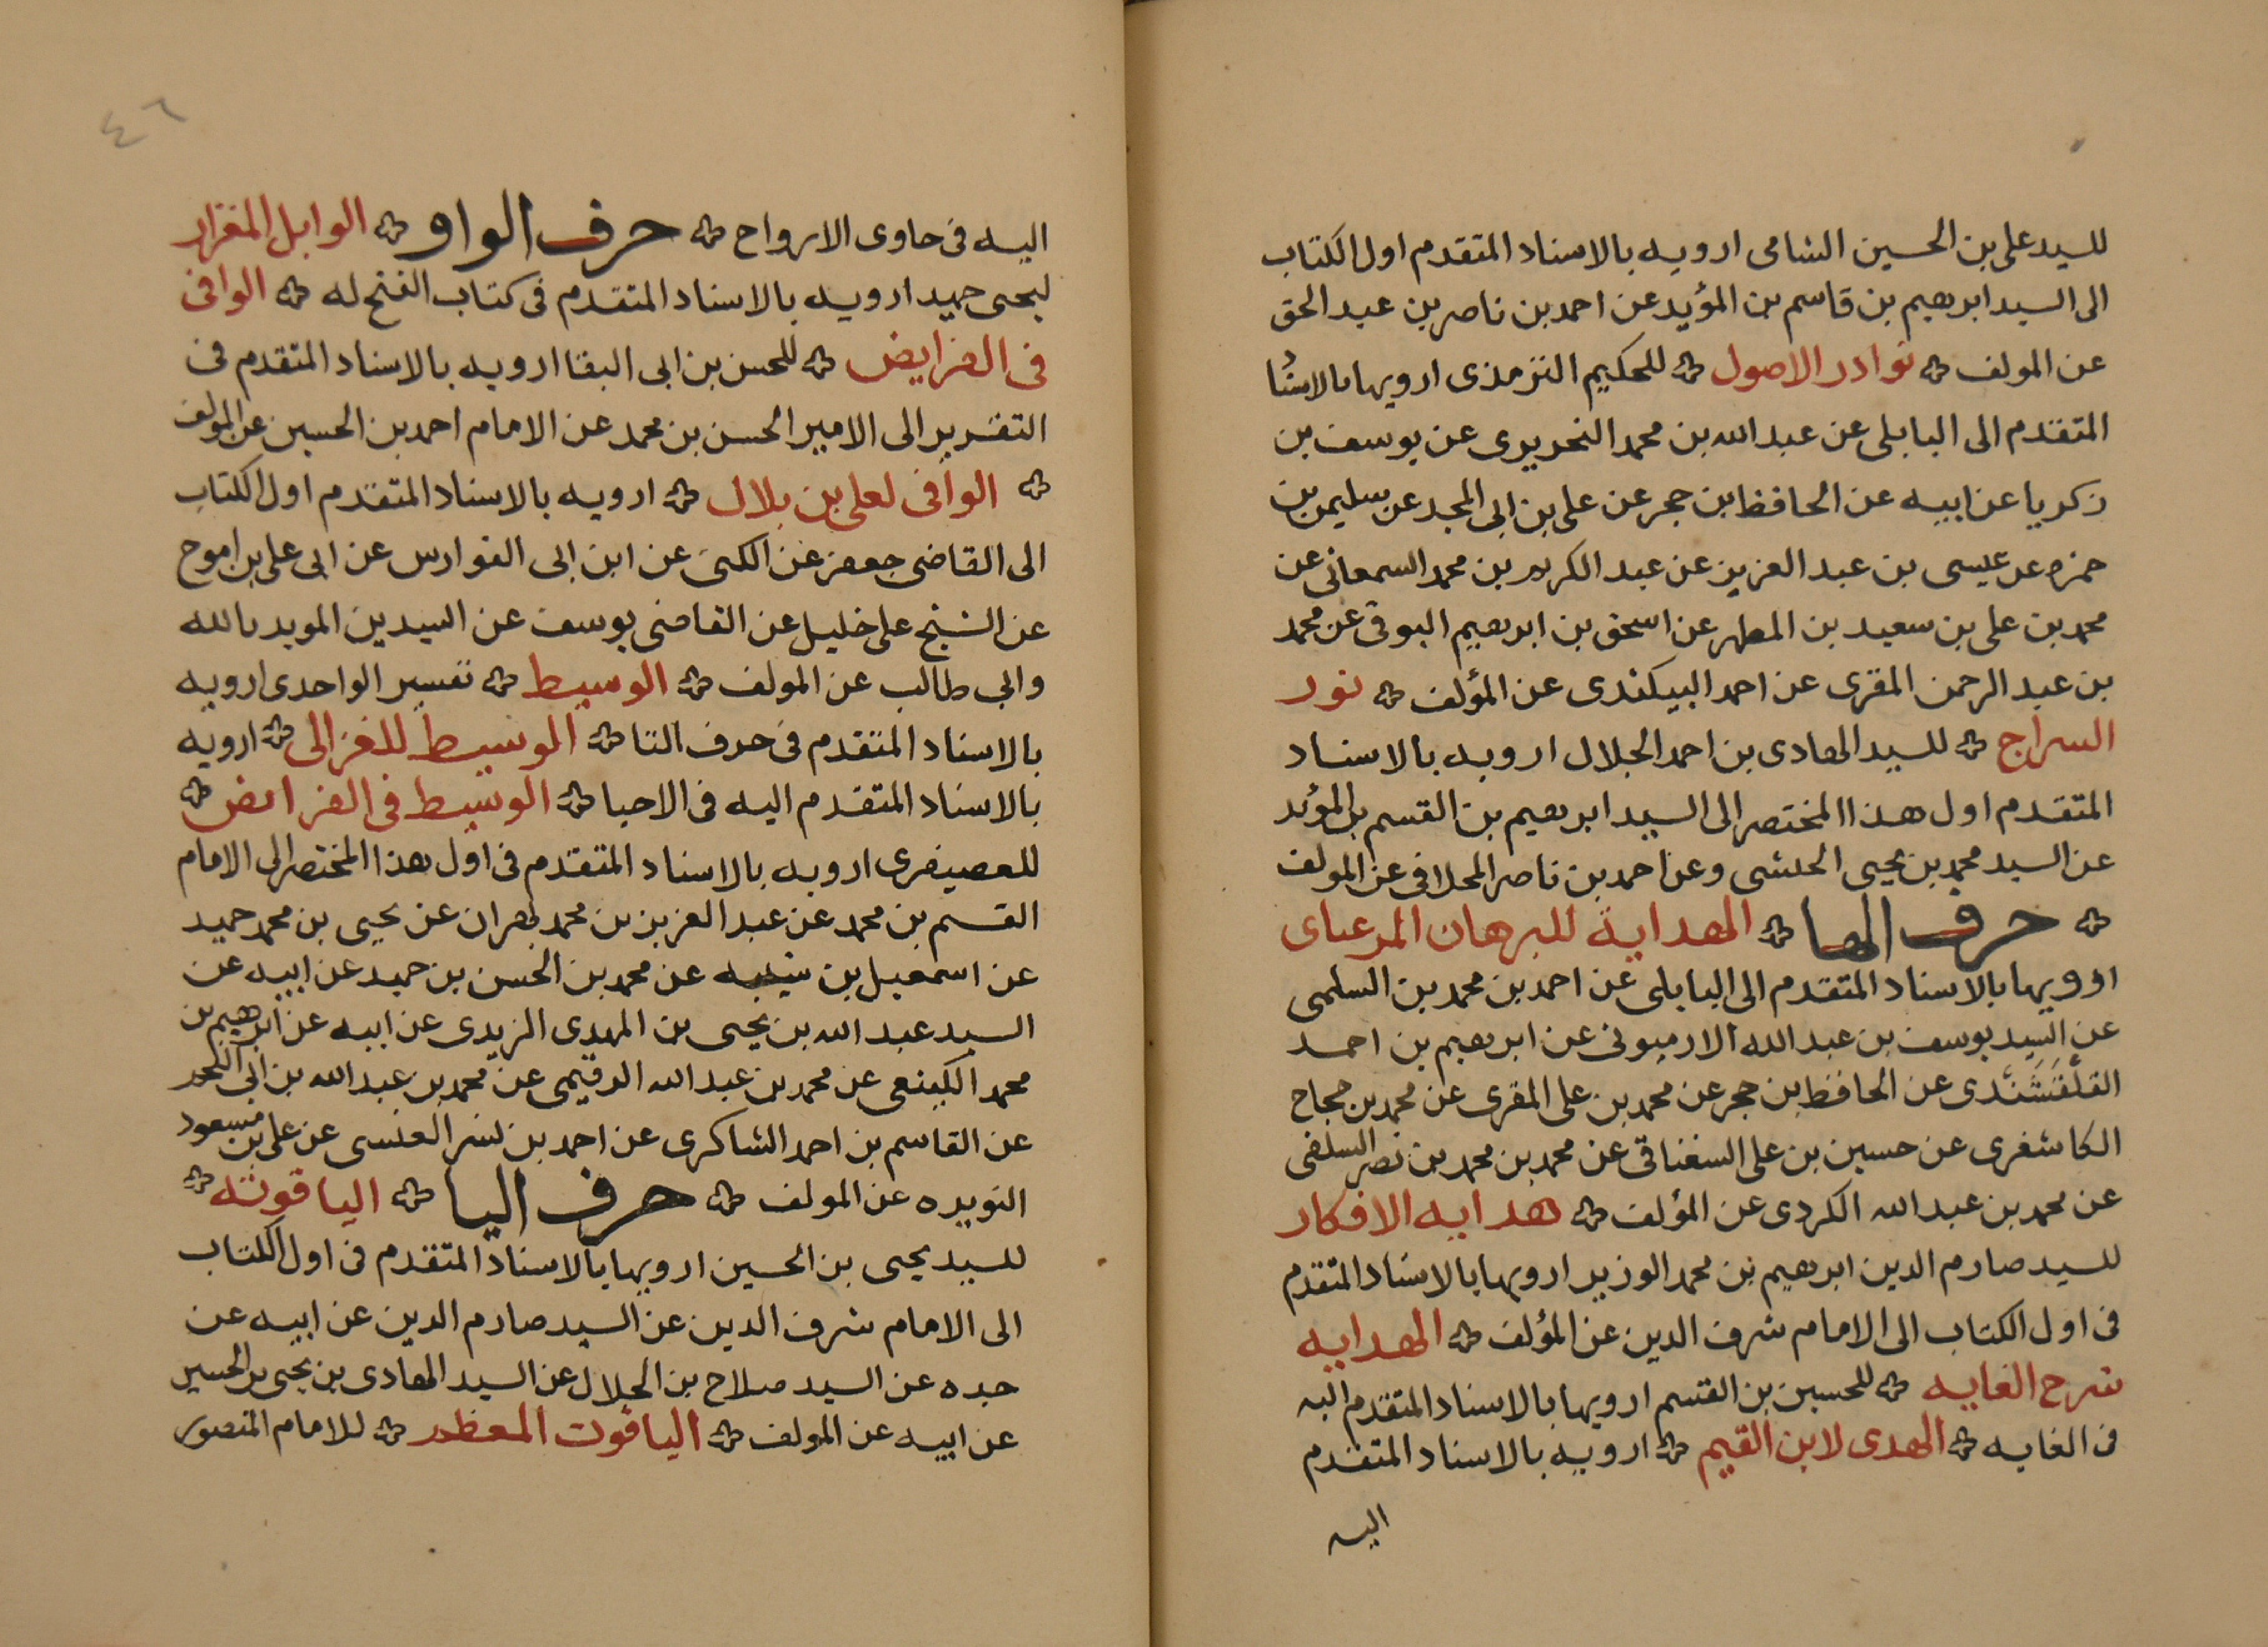 للسيد على بن الحسين الشامى ارويه بالاسناد المتقدم اول الكتاب
الى السيد ابرهيم بن قاسم بن المؤيد عن احمد بن ناصر بن عبد الحق
عن المولف نوادر الاصول للحكيم الترمذى ارويها بالاسنا
المتقدم الى البابلى عن عبد الله بن محمد النحريرى عن يوسف بن
زكريا عن ابيه عن الحافظ بن حجر عن على بن ابى المجد عن سليمن بن
حمزه عن عيسى بن عبد العزيز عن عبد الكريم بن محمد السمعانى عن
محمد بن على بن سعيد بن المطهر عن اسحق بن ابرهيم البوقى عن محمد
بن عبد الرحمن المقرى عن احمد البيكندى عن المؤلف نور
السراج للسيد الهادى بن احمد الجلال ارويه بالاسناد
المتقدم اول هذا المختصر الى السيد ابرهيم بن القسم بن المؤيد
عن السيد محمد بن يحيى وعن احمد بن ناصر المحلافى عن المولف
حرف الها الهداية للبرهان
ارويها بالاسناد المتقدم الى البابلى عن احمد بن محمد بن السلمى
عن السيد يوسف بن عبد الله الارميونى عن ابرهيم بن احمد
القَلْقَشَنْدى عن الحافظ بن حجر عن محمد بن على المقرى عن محمد بن حجاج
الكاشغرى عن حسين بن على السغناقى عن محمد بن محمد بن نصر السلفى
عن محمد بن عبد الله الكردى عن المؤلف هدايه الافكار
للسيد صارم الدين ابرهيم بن محمد الوزير ارويها بالاسناد المتقدم
فى اول الكتاب الى الامام شرف الدين عن المؤلف الهدايه
شرح الغايه للحسين بن القسم ارويها بالاسناد المتقدم اليه
فى الغايه الهدى لابن القيم ارويه بالاسناد المتقدم
اليه
٤٦
اليه فى حاوى الارواح حرف الواو الوابل المغزار
ليحيى حميد ارويه بالاسناد المتقدم فى كتاب الفتح له الوافى
فى الفرايض للحسن بن ابى البقا ارويه بالاسناد المتقدم فى
التقرير الى الامير الحسن بن محمد عن الامام احمد بن الحسين عن المولف
الوافى لعلى بن بلال ارويه بالاسناد المتقدم اول الكتاب
الى القاضى جعفر عن الكنى عن ابن ابى الفوارس عن ابى على بن اموج
عن الشيخ على خليل عن القاضى يوسف عن السيدين المويد بالله
وابى طالب عن المولف الوسيط تفسير الواحدى ارويه
بالاسناد المتقدم فى حرف التا الوسيط للغزالى ارويه
بالاسناد المتقدم اليه فى الاحيا الوسيط فى الفرايض
للعصيفرى ارويه بالاسناد المتقدم فى اول هذا المختصر الى الامام
القسم بن محمد عن عبد العزيز بن محمد بهران عن يحيى بن محمد حميد
عن اسمعيل بن عن محمد بن الحسن بن حميد عن ابيه عن
السيد عبد الله بن يحيى بن المهدى الزيدى عن ابيه عن ابرهيم بن
محمد الكينعى عن محمد بن عبد الله الرقيمى عن محمد بن عبد الله بن ابى
عن القاسم بن احمد الشاكرى عن احمد بن نسر العنسى عن على بن مسعود
النويره عن المولف حرف اليا الياقوتة
للسيد يحيى بن الحسين ارويها بالاسناد المتقدم فى اول الكتاب
الى الامام شرف الدين عن السيد صارم الدين عن ابيه عن
جده عن السيد صلاح بن الجلال عن السيد الهادى بن يحيى بن الحسين
عن ابيه عن المولف الياقوت المعظم للامام المنصور